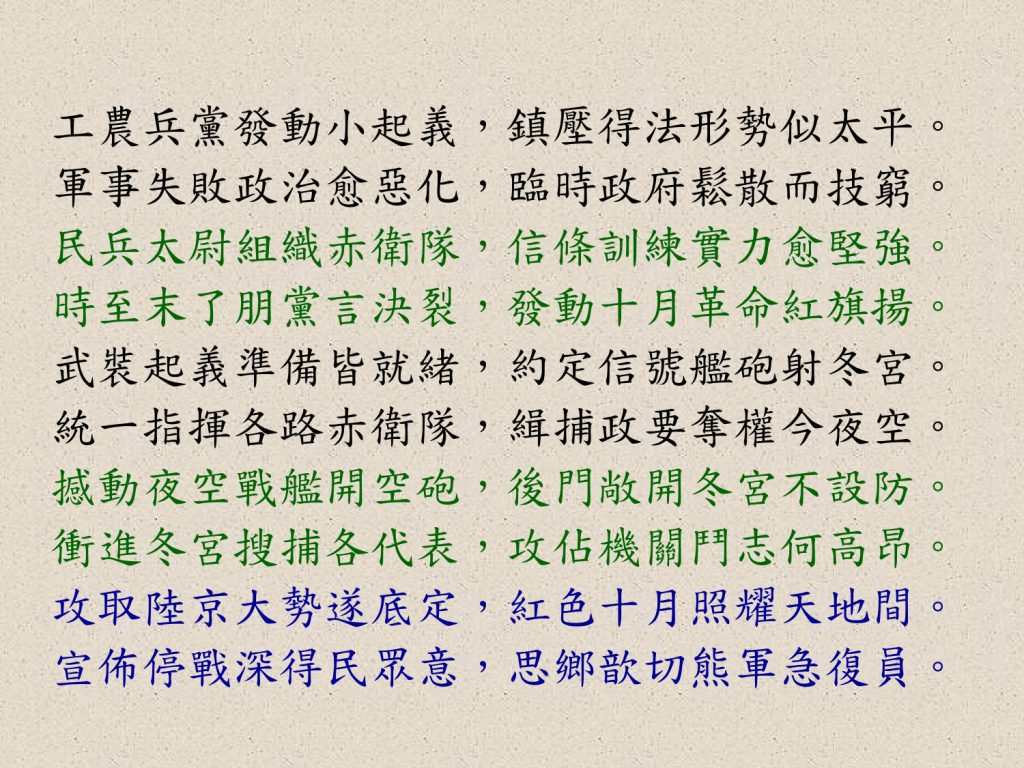 工農兵黨發動小起義，鎮壓得法形勢似太平。
軍事失敗政治愈惡化，臨時政府鬆散而技窮。
民兵太尉組織赤衛隊，信條訓練實力愈堅強。
時至末了朋黨言決裂，發動十月革命紅旗揚。
武裝起義準備皆就緒，約定信號艦砲射冬宮。
統一指揮各路赤衛隊，緝捕政要奪權今夜空。
撼動夜空戰艦開空砲，後門敞開冬宮不設防。
衝進冬宮搜捕各代表，攻佔機關鬥志何高昂。
攻取陸京大勢遂底定，紅色十月照耀天地間。
宣佈停戰深得民眾意，思鄉歆切熊軍急復員。